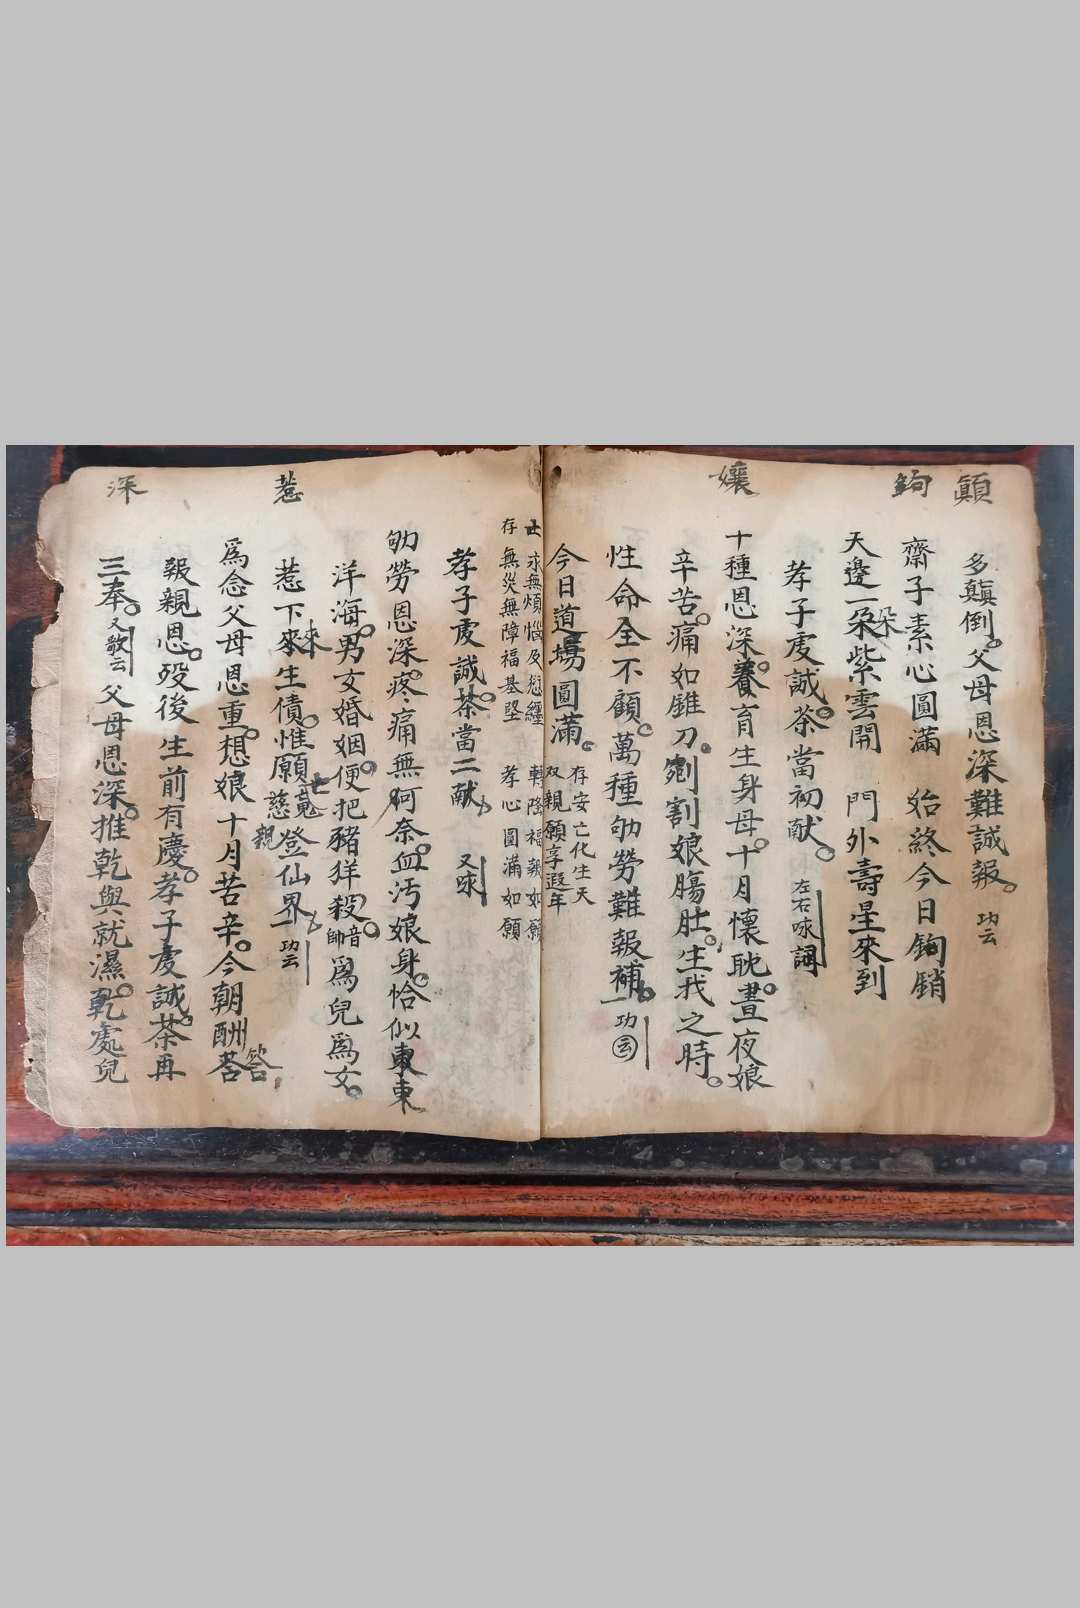 顛
鉤
孃
多顛倒。父母恩深難誠報。功云
齋子素心圓滿 始終今日鉤銷
天邊一朵紫雲開 門外壽星來到
朵
孝子虔誠茶當初献。左右咏詞
十種恩深。養育生身母。十月懷耽。晝夜娘
辛苦。痛如錐刀。剜割娘腸肚。生我之時。
性命全不顧。萬種劬勞難報補。功云
今日道場圓滿。
存安亡化生天
双親願享遐年
亡永無煩惱及愆纏 轉降福報如願
存無災無障福基堅 孝心圓滿如願
惹
深
孝子虔誠。茶當二献。又咏
劬勞恩深。疼痛無奈。血污娘身。恰似東東
洋海。男女婚姻。便把豬羊殺。音帥爲兒爲女。
惹下來生債。惟願慈登仙界。功云
來
亡魂
親
爲念父母恩重。想娘十月苦辛。今朝酬荅
答
報親恩。歿後生前有慶。孝子虔誠。茶再
三奉。又歌云父母恩深。推乾與就濕。乾處兒